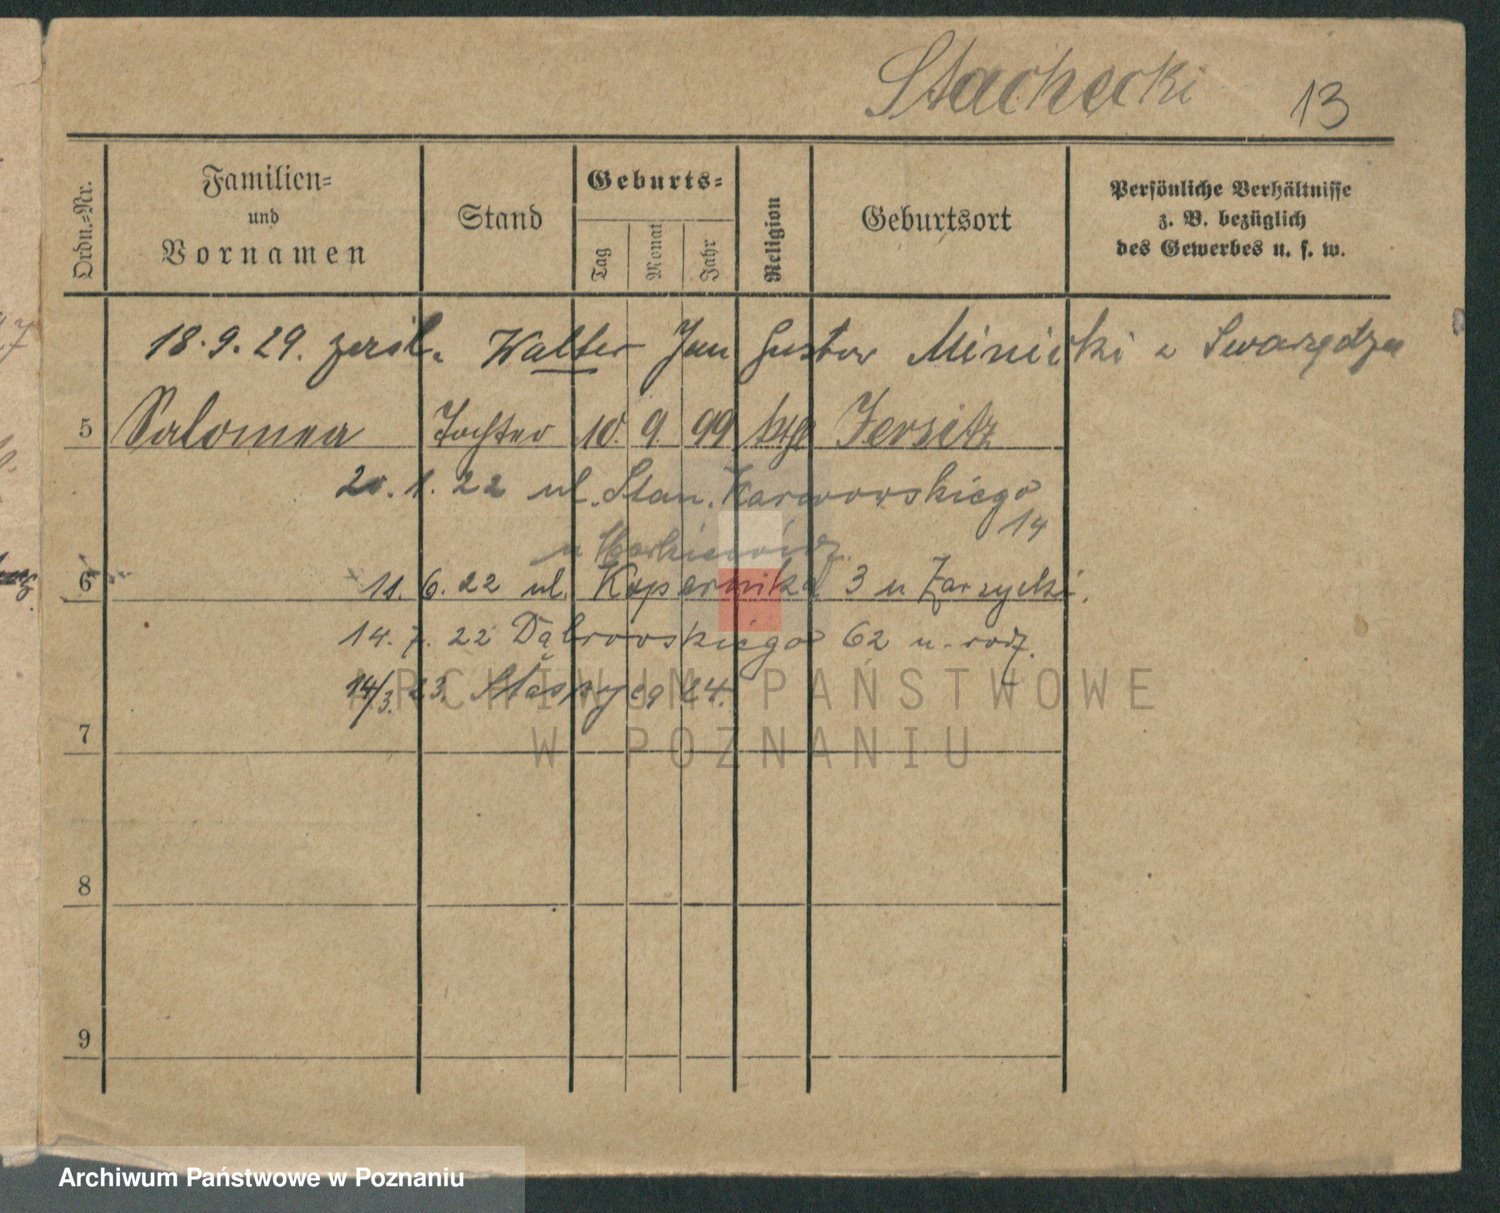 Stachecki 13
Ordn.=Nr.
Familien=
und
Vornamen
Stand
Geburts=
Tag
Monat
Jahr
Religion
Geburtsort
Persönliche Verhältnisse
z. B. bezüglich
des Gewerbes u. s. w.
18.9.29. Walter Jan Gustav Minicki z Swarzędza
5 Salomea Tochter 10 9 99 kth Jersitz
20.1.22 ul. Stan. Karwowskiego
14
u
6 11.6.22 ul. Kopernika 3 u Zarzycki.
14.7.22 Dąbrowskiego 62 u. rodz.
14/3.23. Staszyca 24.
7
8
9
ARCHIWUM PAŃSTWOWE
W POZNANIU
Archiwum Państwowe w Poznaniu